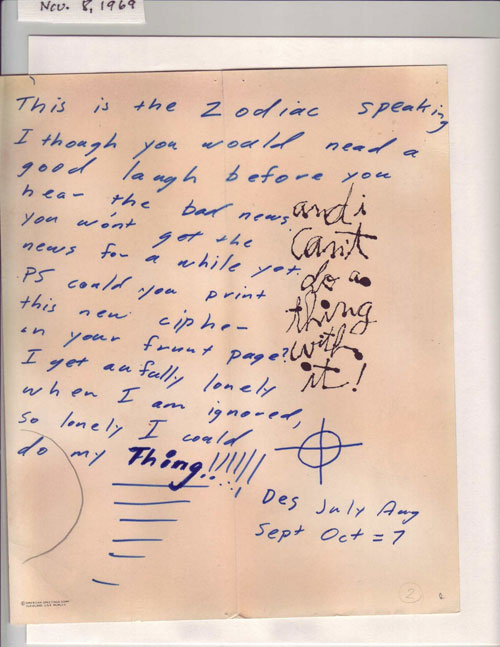 Nov. 8, 1969
This is the Zodiac speaking
I though you would nead a
good laugh before you
hear the bad news
you won't get the
news for a while yet
PS could you print
this new cipher
on your frunt page?
I get aufully lonely
when I am ignored,
so lonely I could
do my Thing!!!!!!
and i
can't
do a
thing
with
it!
Des July Aug
Sept Oct = 7
2